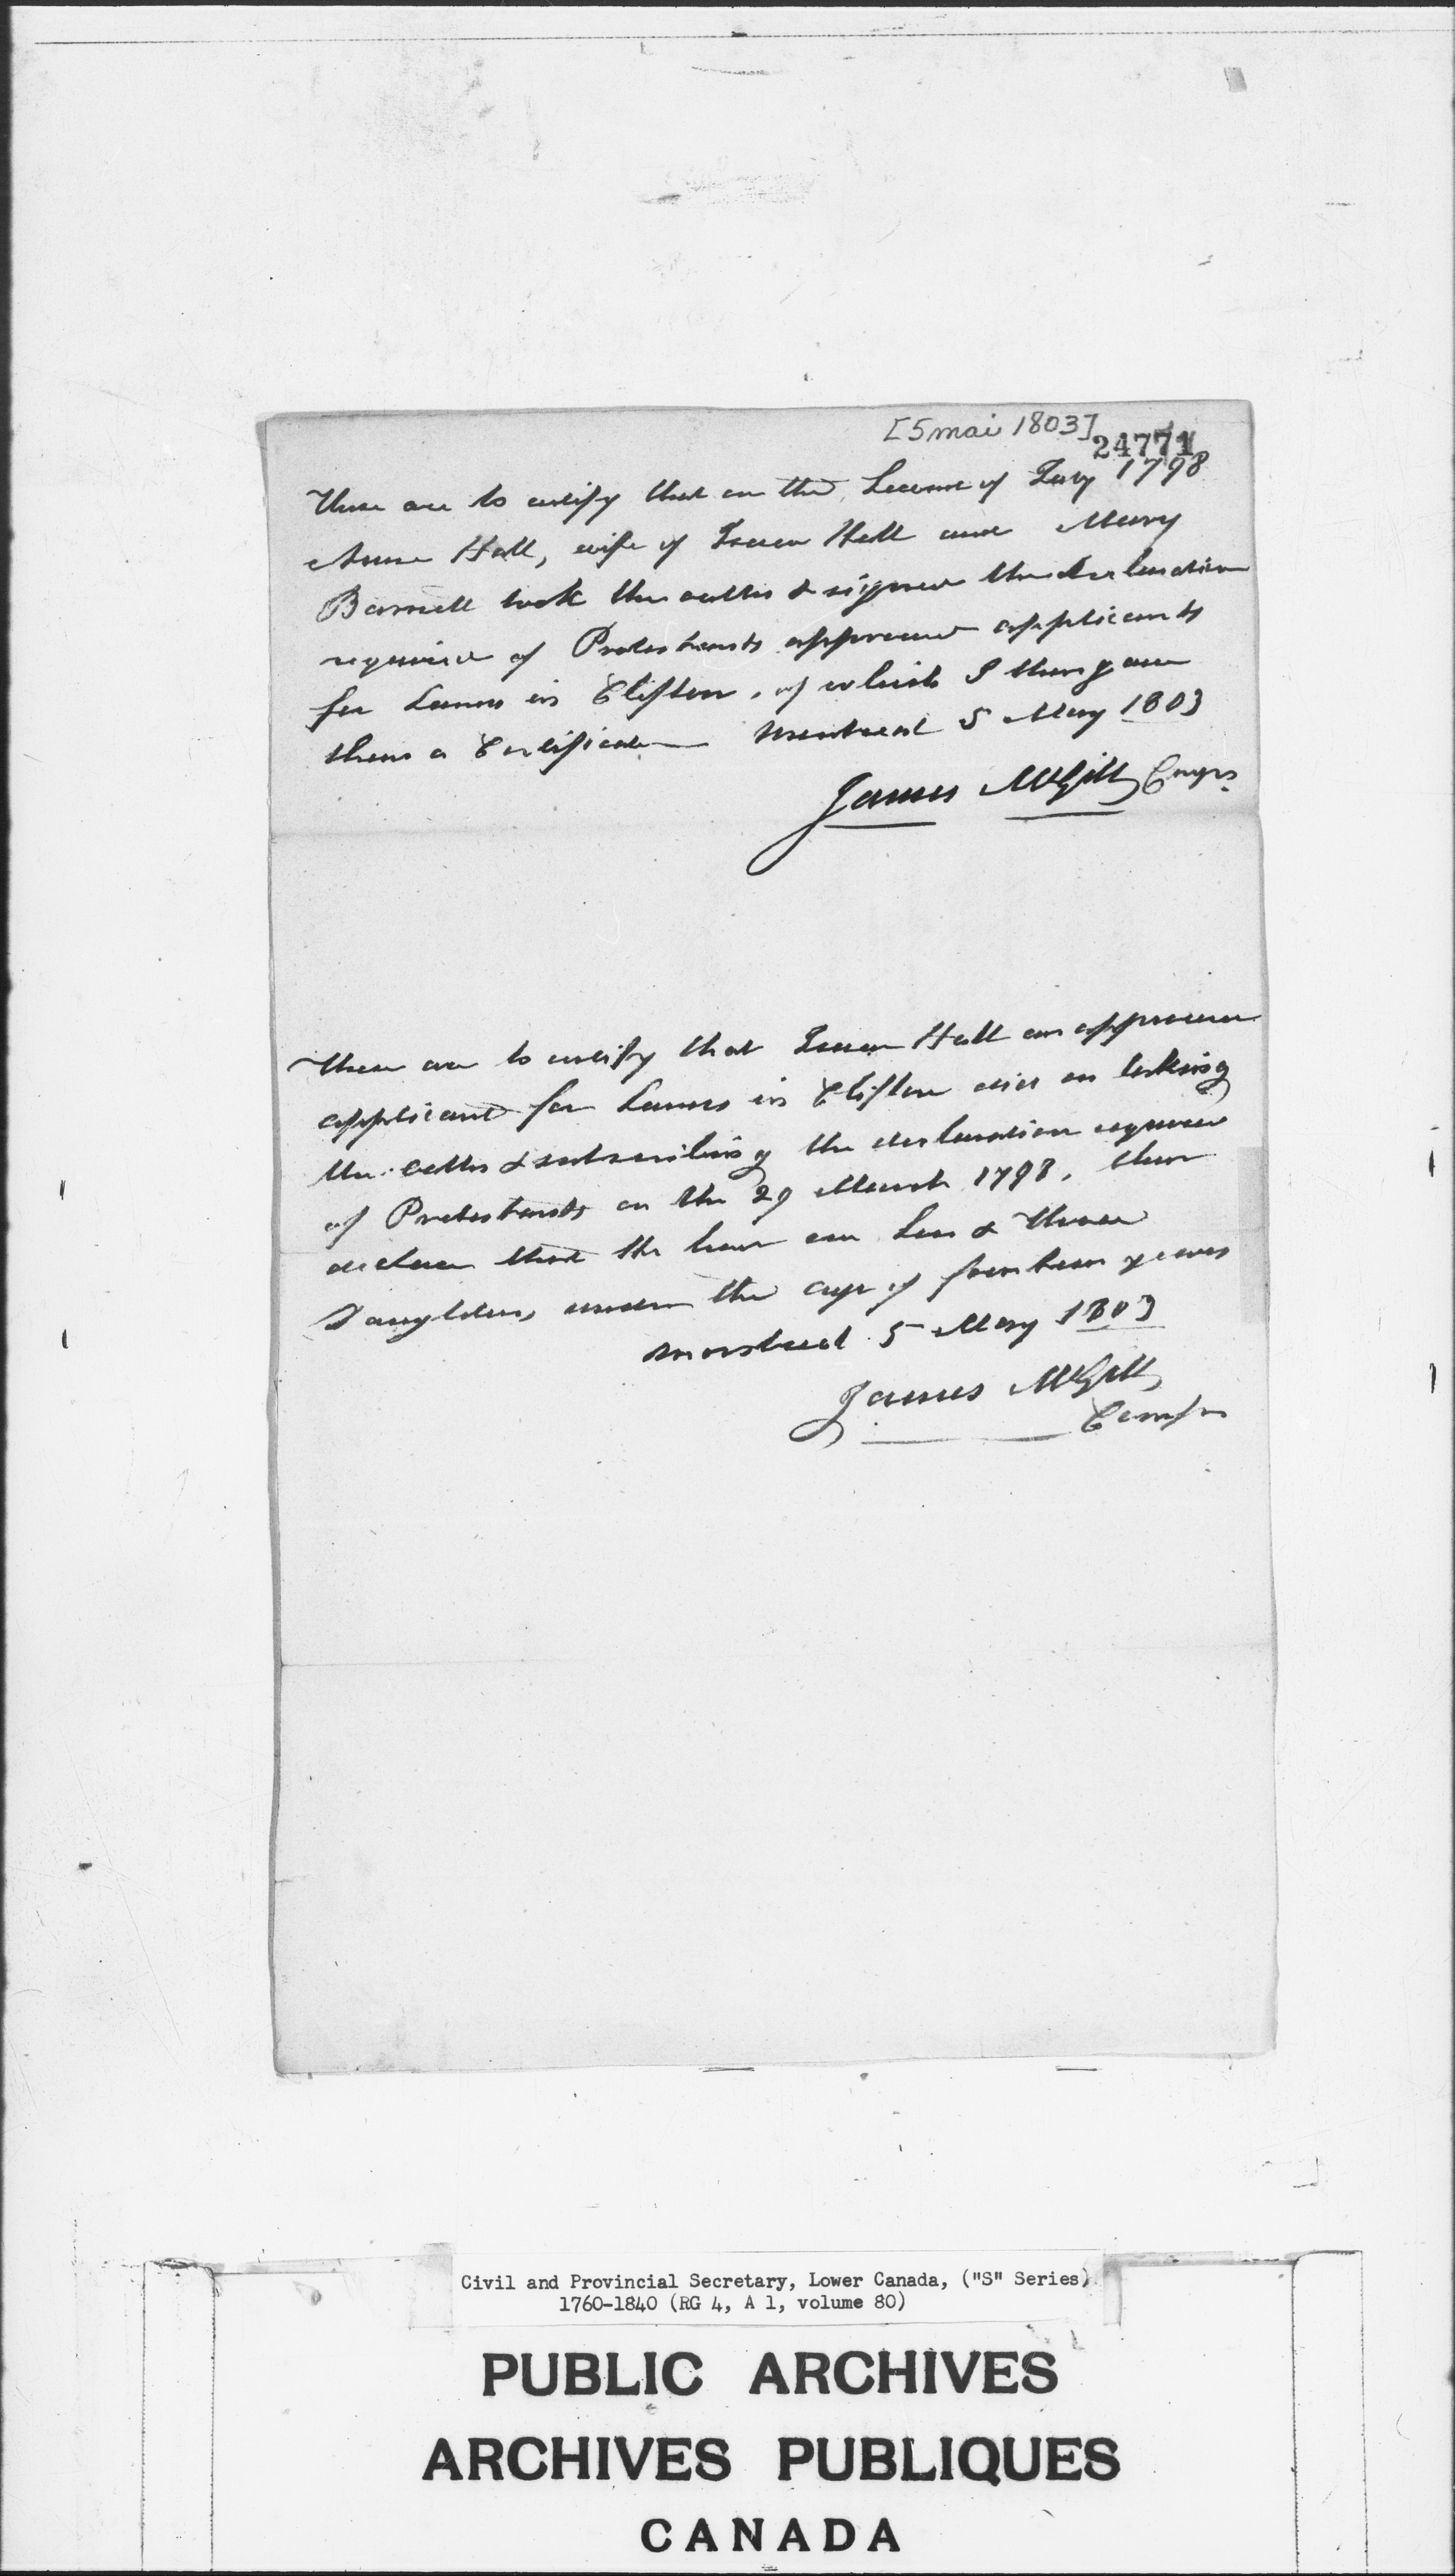 [5 mai 1803]
24771
These are to certify that on the Second of July 1798
Anna Hall, wife of Isaac Hall and Mary
Barnett took the oaths & signed the declaration
required of Protestants approved applicants
for Lands in Clifton, of which I then gave
them a Certificate Montreal 5 May 1803
James McGill Comrs.
These are to certify that Isaac Hall an approved
applicant for Lands in Clifton did on taking
the oaths & subscribing the declaration required
of Protestants on the 29 March 1798, then
declare that he have one Son & three
Daughters, under the age of fourteen years
Montreal 5 May 1803
James McGill
Comr
Civil and Provincial Secretary, Lower Canada, ("S" Series)
1760-1840 (RG 4, A 1, volume 80)
PUBLIC ARCHIVES
ARCHIVES PUBLIQUES
CANADA